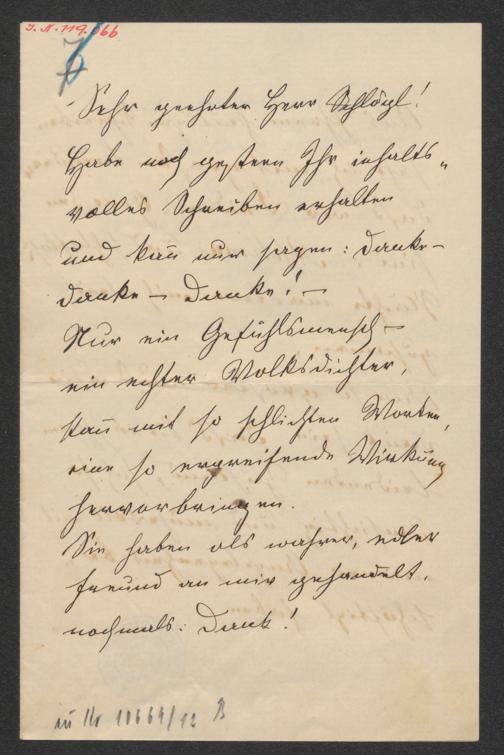 I. N. 119.066
Sehr geehrter Herr Schlögl!
Habe noch gestern Ihr inhalts-
volles Schreiben erhalten
und kan̄ nur sagen: Danke –
Danke – Danke! –
Nur ein Gefühlsmensch –
ein echter Volksdichter,
kan̄ mit so schlichten Worten,
eine so ergreifende Wirkung
hervorbringen.
Sie haben als wahrer, edler
Freund an mir gehandelt,
nochmals: Dank!
zu Nr 10664/12 B